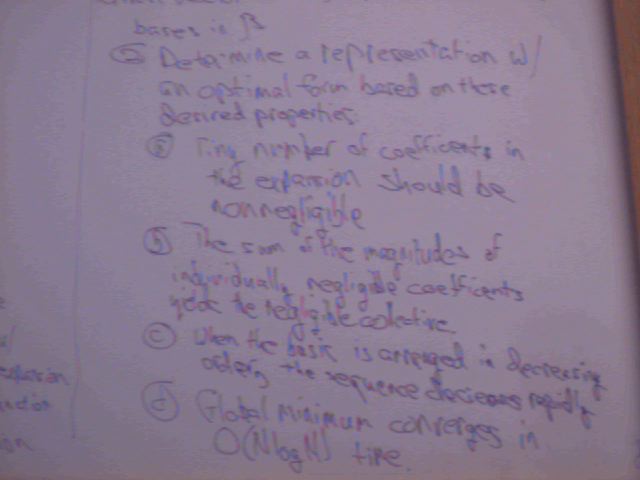 bases in β
② Determine a representation w/
an optimal form based on these
desired properties.
ⓐ Tiny number of coefficents in
the expansion should be
nonnegligible
ⓑ The sum of the magnitudes of
individually negligible coefficents
the negligible collective.
ⓒ When the basis is arranged in decreasing
order, the sequence decreases rapidly
ⓓ Global minimum converges in
O(N log N) time.
w/
expansion